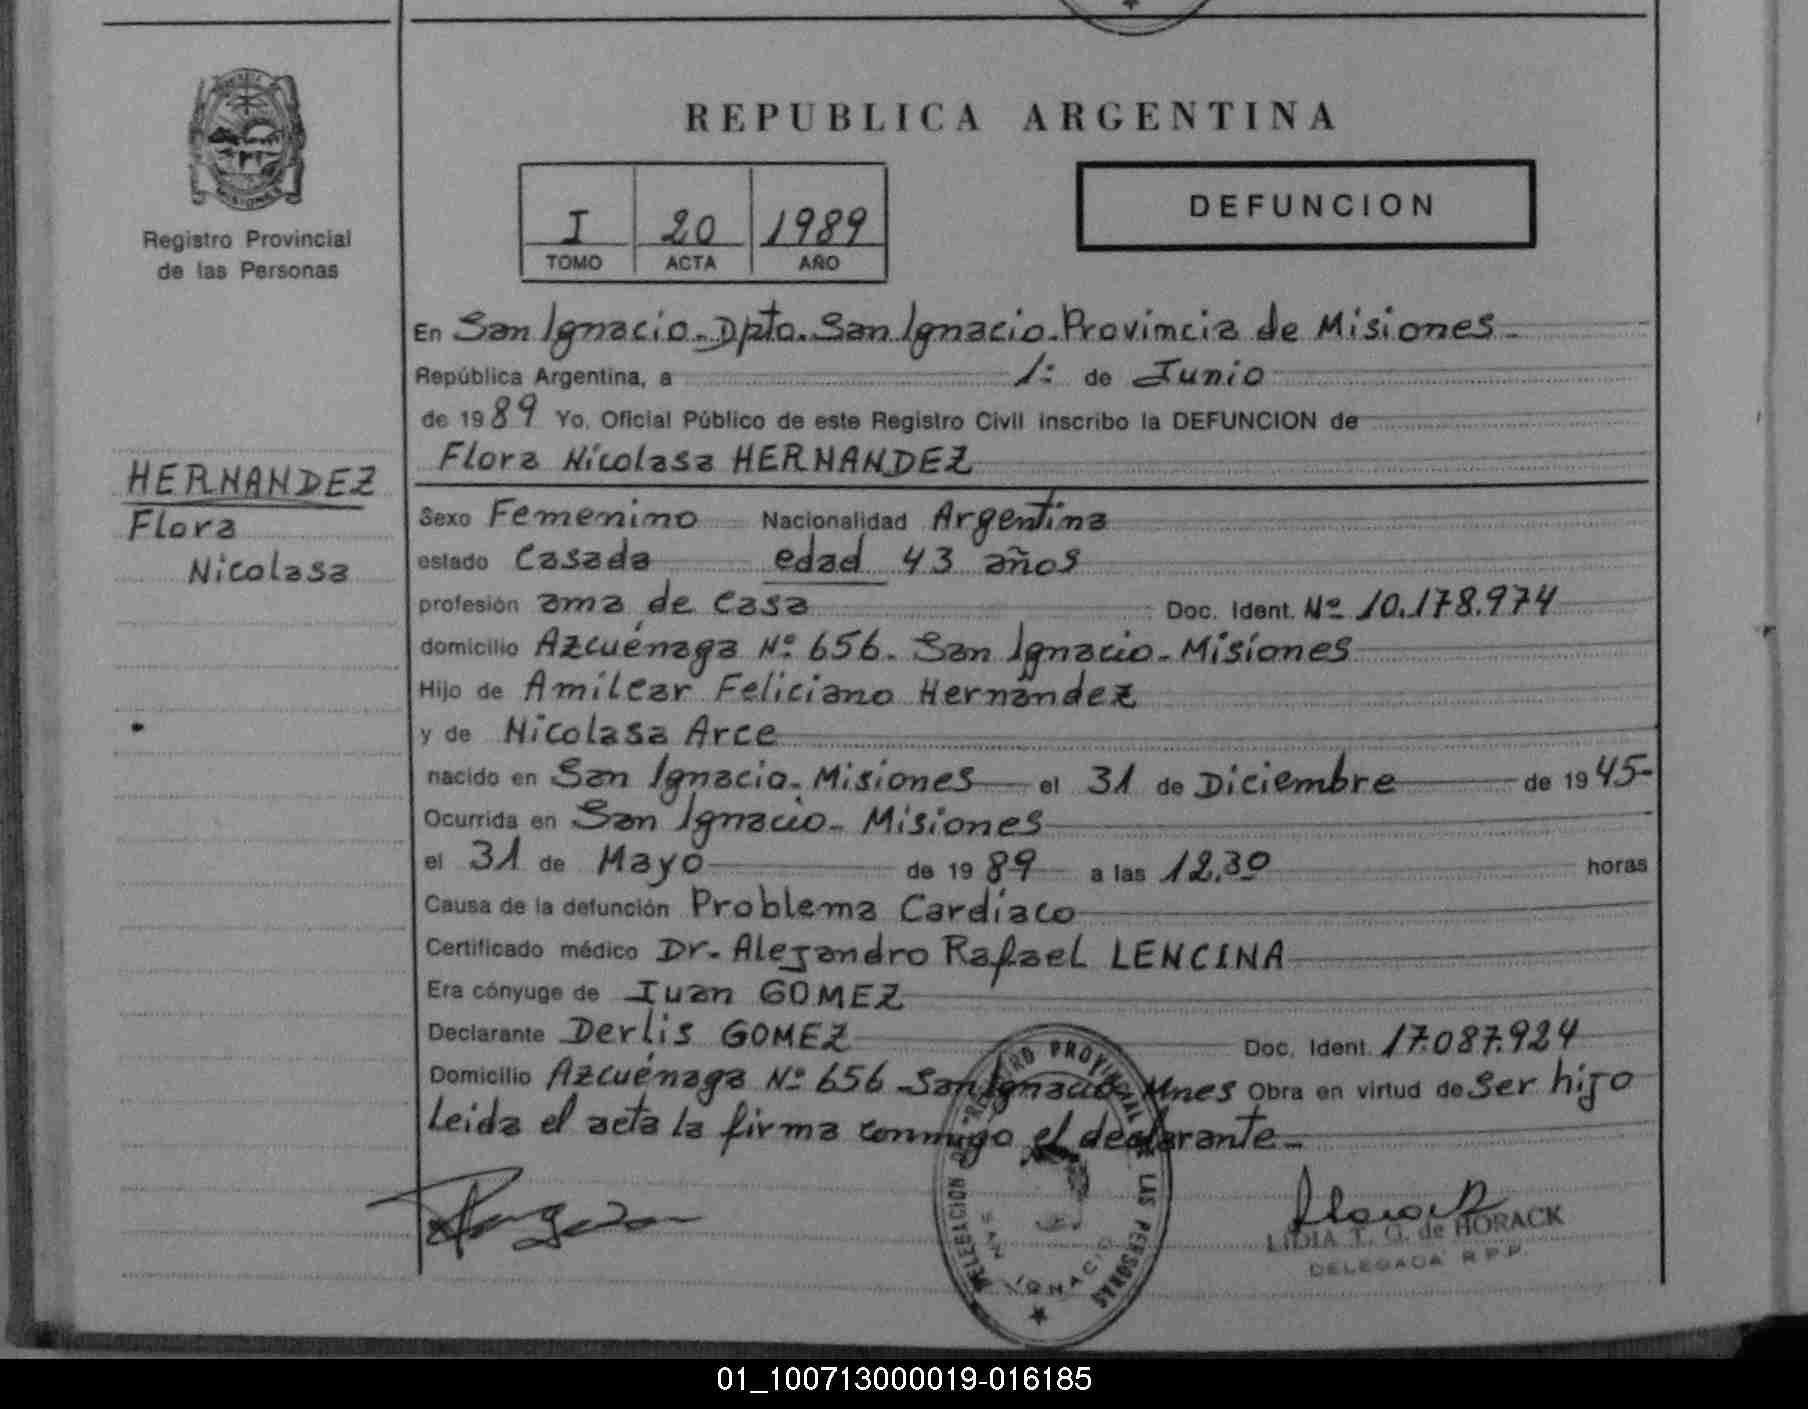 REPUBLICA ARGENTINA
MISIONES
Registro Provincial
de las Personas
I 20 1989
TOMO ACTA AÑO
DEFUNCION
En San Ignacio. Dpto. San Ignacio. Provincia de Misiones.
República Argentina, a 1: de Junio
de 1989 Yo, Oficial Público de este Registro Civil inscribo la DEFUNCION de
Flora Nicolasa HERNANDEZ
HERNANDEZ
Flora
Nicolasa
Sexo Femenino Nacionalidad Argentina
estado Casada edad 43 años
profesión ama de casa Doc. Ident. Nº 10.178.974
domicilio Azcuénaga Nº 656. San Ignacio. Misiones
Hijo de Amilcar Feliciano Hernandez
y de Nicolasa Arce
nacido en San Ignacio. Misiones el 31 de Diciembre de 1945-
Ocurrida en San Ignacio. Misiones
el 31 de Mayo de 1989 a las 12.30 horas
Causa de la defunción Problema Cardíaco
Certificado médico Dr. Alejandro Rafael LENCINA
Era cónyuge de Juan GOMEZ
Declarante Derlis GOMEZ Doc. Ident. 17.087.924
Domicilio Azcuénaga Nº 656 San Ignacio Mnes Obra en virtud de ser hijo
Leida el acta la firma conmigo el declarante.
DELEGACION REGISTRO PROVINCIAL DE LAS PERSONAS
SAN IGNACIO
LIDIA T. G. de HORACK
DELEGADA R.P.P.
01_100713000019-016185